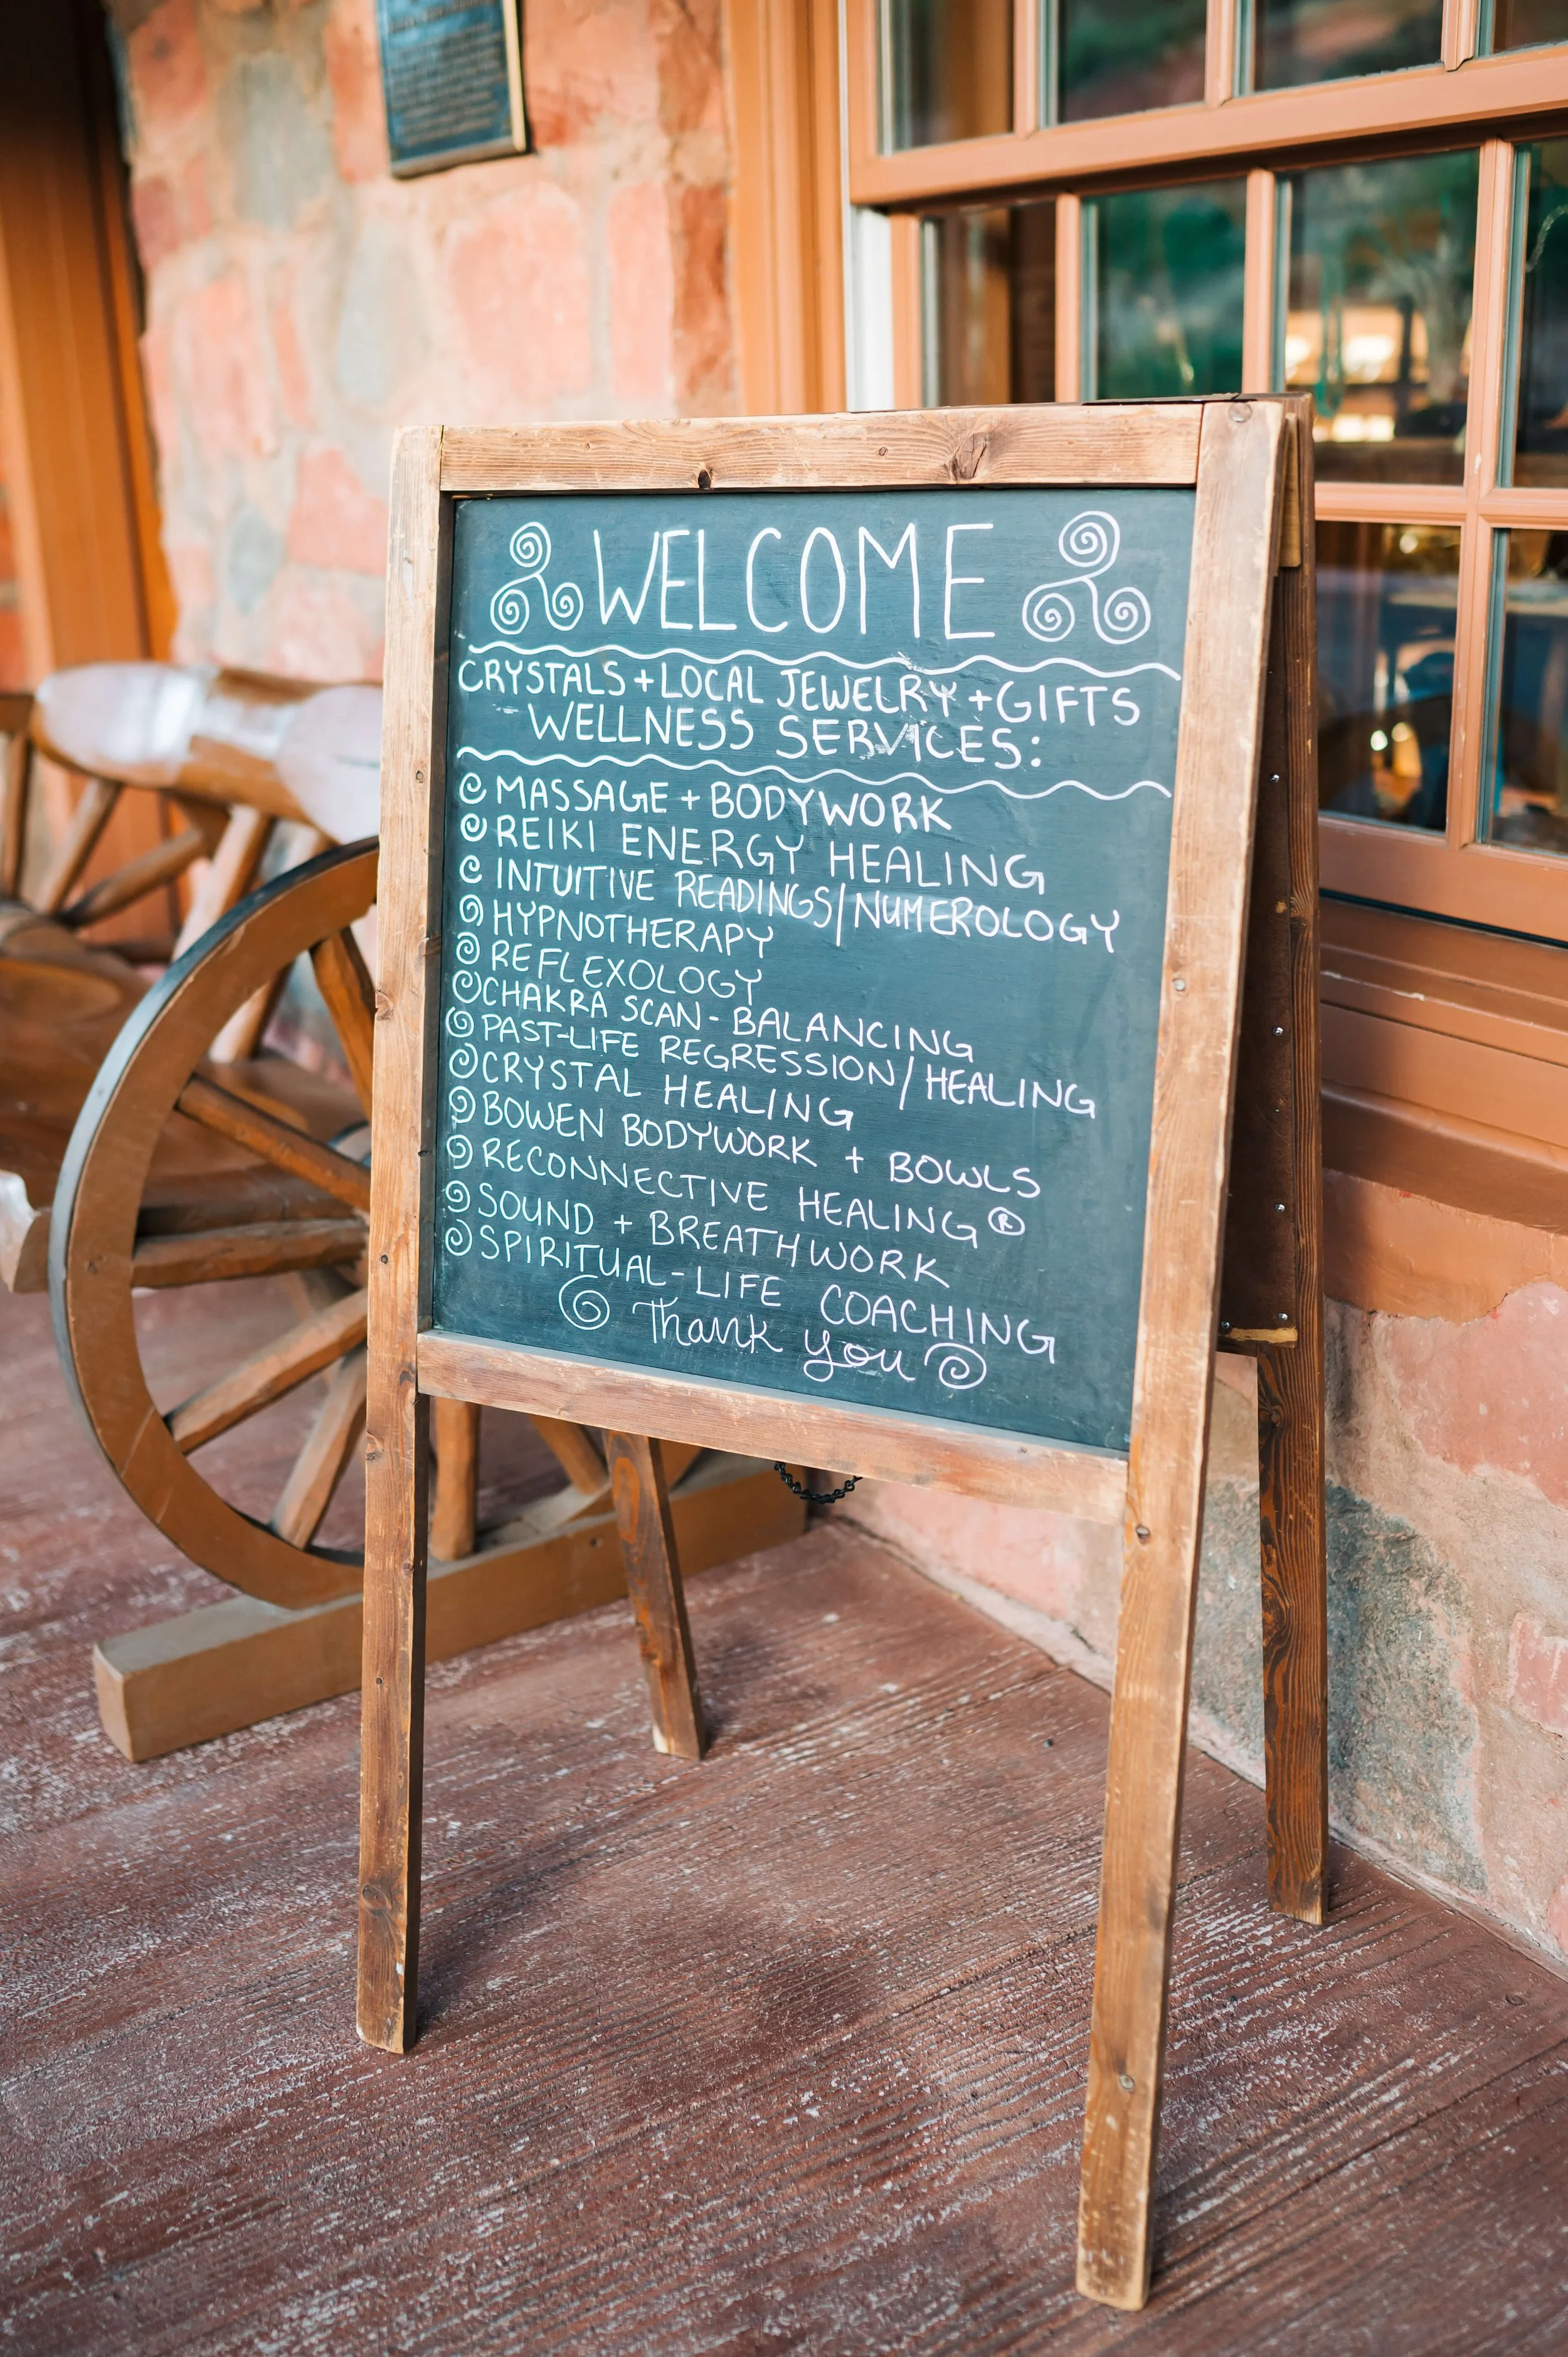 WELCOME
CRYSTALS + LOCAL JEWELRY + GIFTS
WELLNESS SERVICES:
MASSAGE + BODYWORK
REIKI ENERGY HEALING
INTUITIVE READINGS/NUMEROLOGY
HYPNOTHERAPY
REFLEXOLOGY
CHAKRA SCAN - BALANCING
PAST-LIFE REGRESSION/HEALING
CRYSTAL HEALING
BOWEN BODYWORK + BOWLS
RECONNECTIVE HEALING®
SOUND + BREATHWORK
SPIRITUAL-LIFE COACHING
Thank you